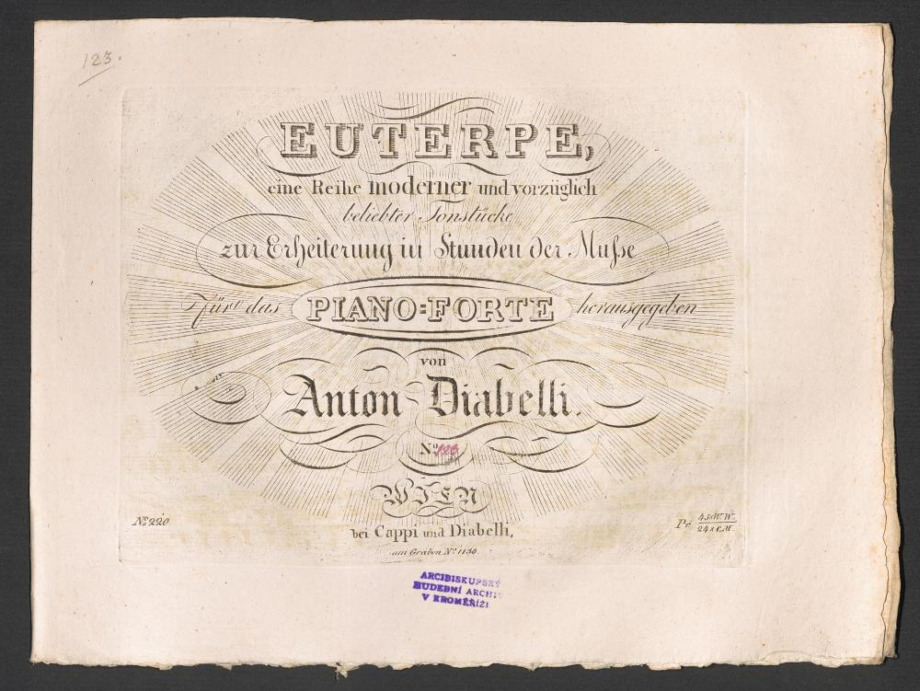 123.
EUTERPE,
eine Reihe moderner und vorzüglich
beliebter Tonstücke
zur Erheiterung in Stunden der Muſse
für das PIANO=FORTE herausgegeben
von
Anton Diabelli.
No.
WIEN
No. 220
bei Cappi und Diabelli,
am Graben No. 1133.
Pr.
ARCIBISKUPSKÝ
HUDEBNÍ ARCHIV
V KROMĚŘÍŽI